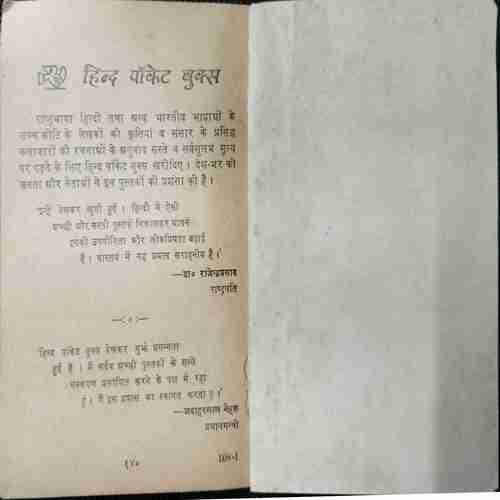 हिन्द पॉकेट बुक्स
राष्ट्रभाषा हिन्दी तथा अन्य भारतीय भाषाओं के
उच्च कोटि के लेखकों की कृतियां व संसार के प्रसिद्ध
कलाकारों की रचनाओं के अनुवाद सस्ते व सर्वसुलभ मूल्य
पर पढ़ने के लिए हिन्द पॉकेट बुक्स खरीदिए। देश-भर की
जनता और नेताओं ने इन पुस्तकों की प्रशंसा की है।
'इन्हें देखकर खुशी हुई। हिन्दी में ऐसी
अच्छी और सस्ती पुस्तकें निकालकर आपने
इनकी उपयोगिता और लोकप्रियता बढ़ाई
है। वास्तव में यह प्रयत्न सराहनीय है।'
—डा० राजेन्द्रप्रसाद
राष्ट्रपति
—:०:—
'हिन्द पॉकेट बुक्स देखकर मुझे प्रसन्नता
हुई है। मैं सदैव अच्छी पुस्तकों के सस्ते
संस्करण प्रकाशित करने के पक्ष में रहा
हूं। मैं इस प्रयास का स्वागत करता हूं।'
—जवाहरलाल नेहरू
प्रधानमन्त्री
१४०